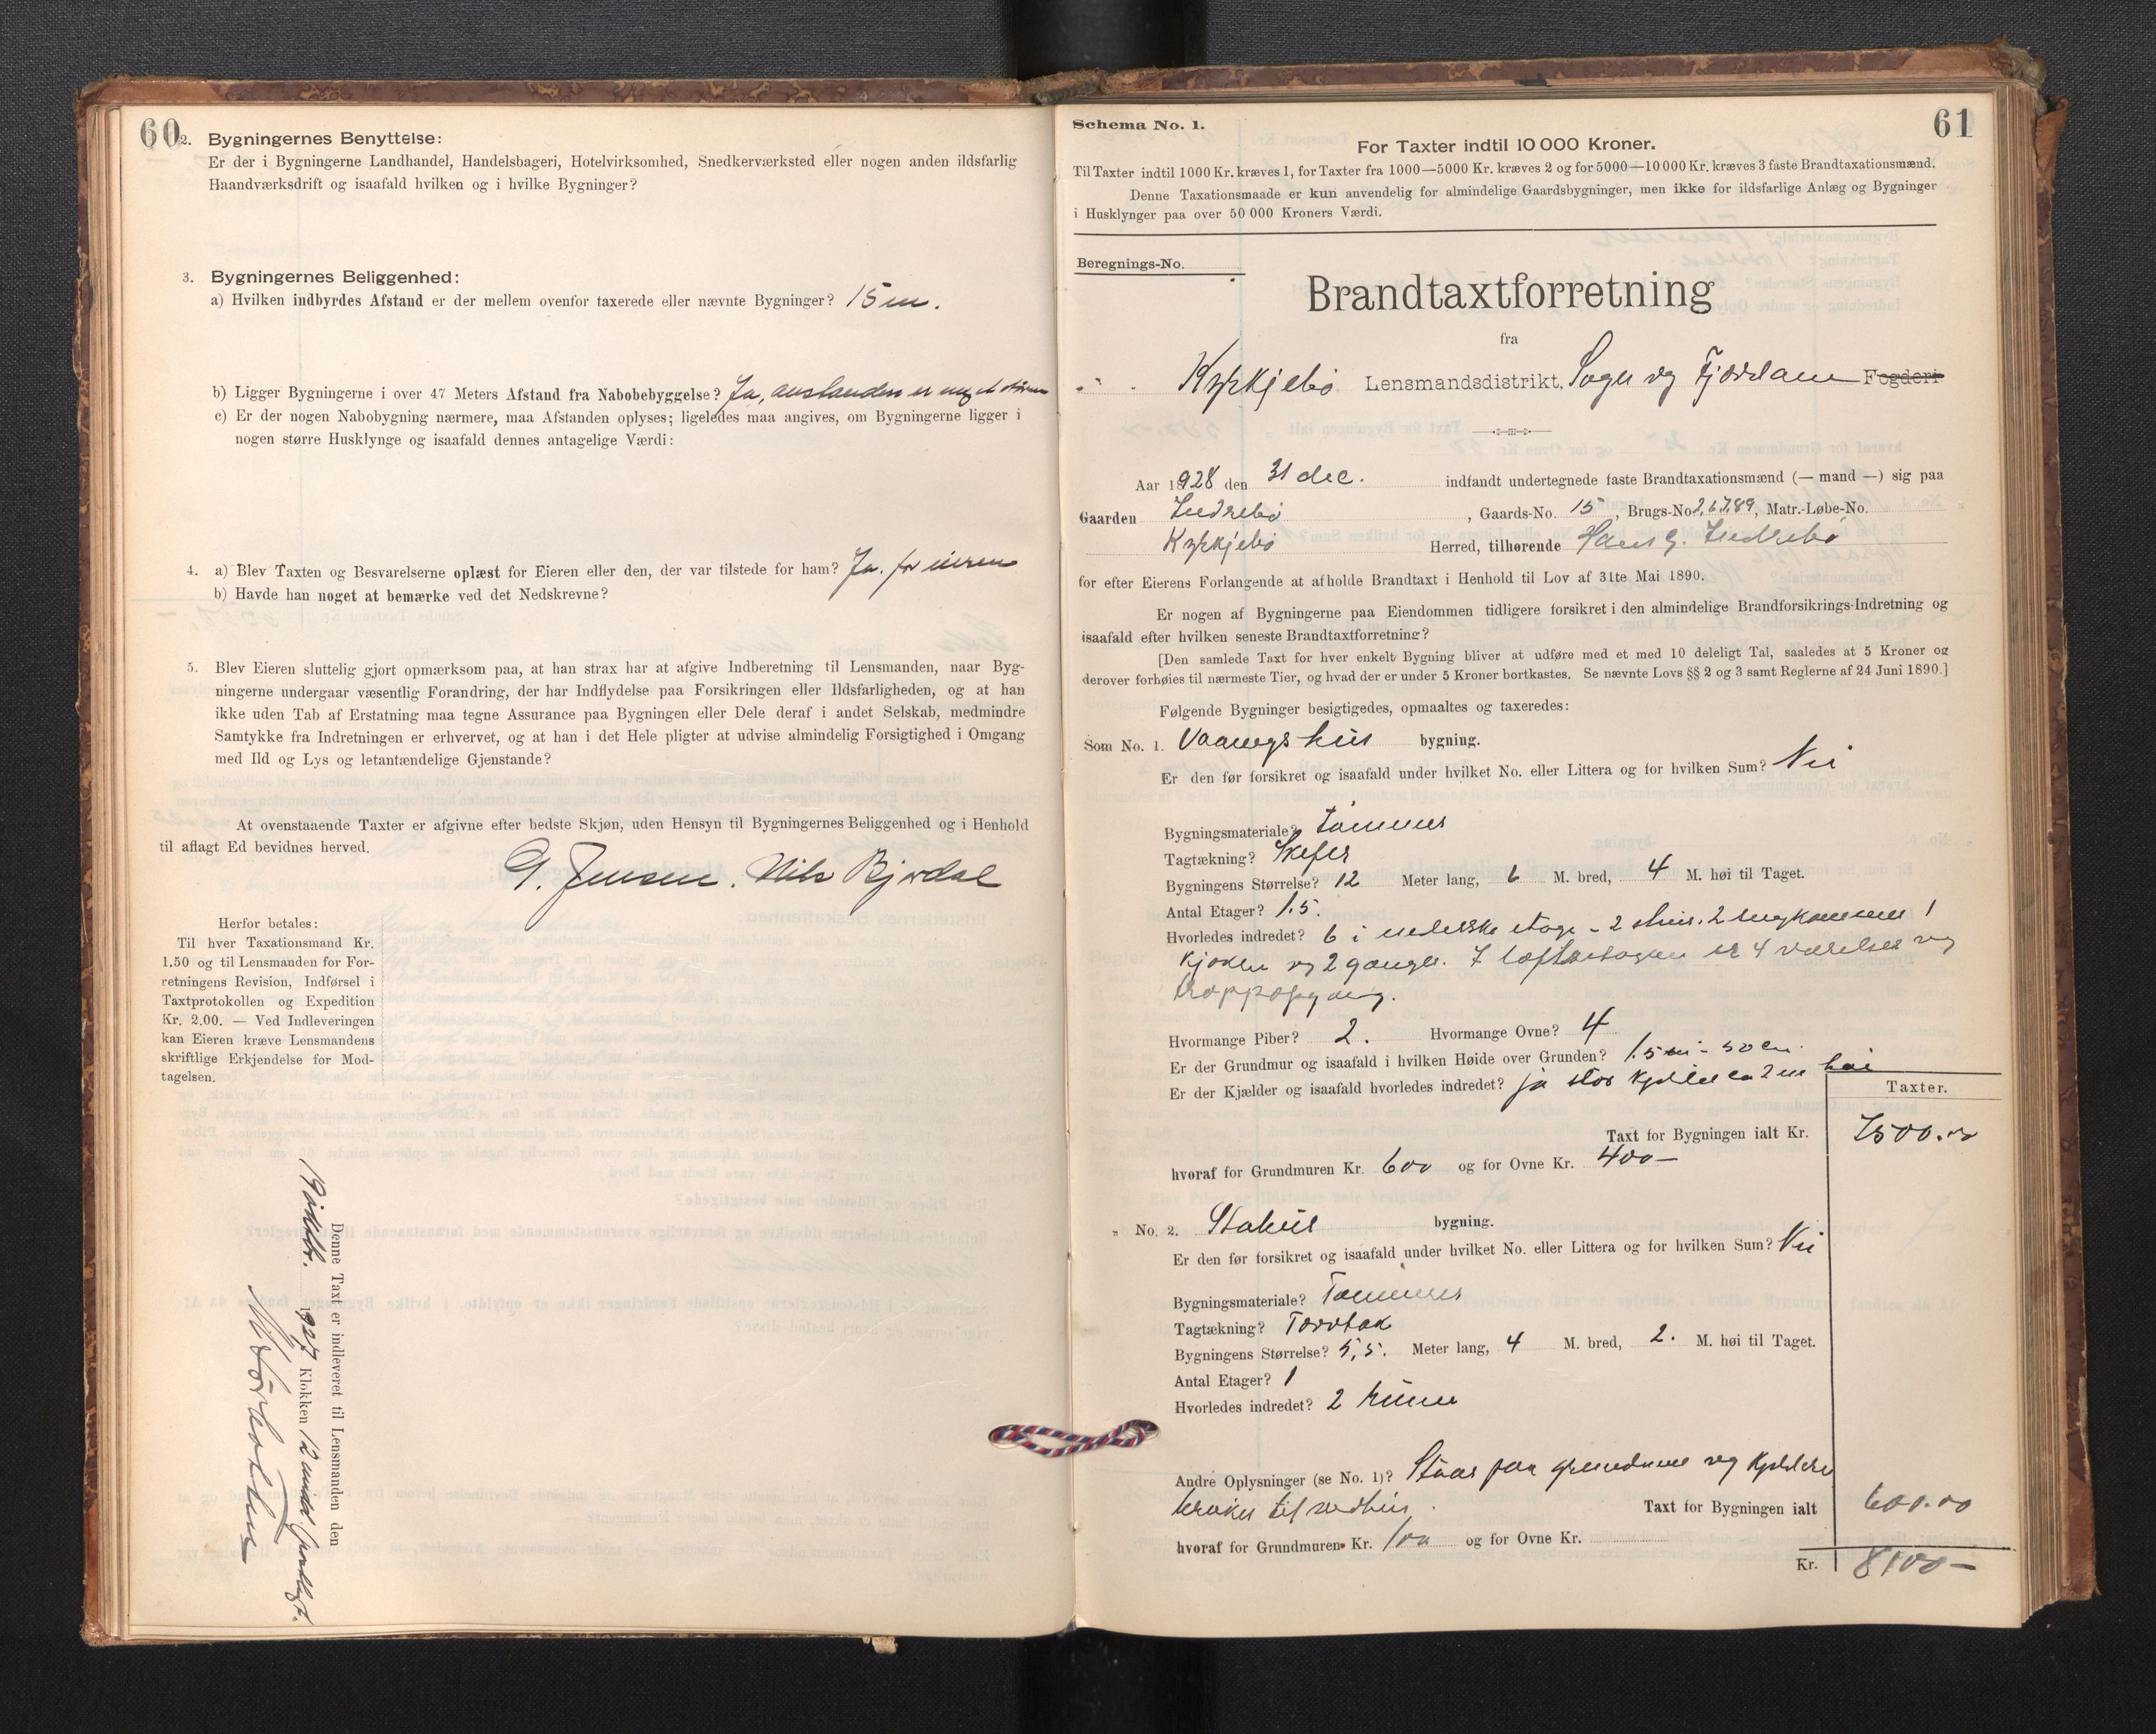 60
2. Bygningernes Benyttelse:
Er der i Bygningerne Landhandel, Handelsbageri, Hotelvirksomhed, Snedkerværksted eller nogen anden ildsfarlig
Haandværksdrift og isaafald hvilken og i hvilke Bygninger?
3. Bygningernes Beliggenhed:
a) Hvilken indbyrdes Afstand er der mellem ovenfor taxerede eller nævnte Bygninger? 15 m.
b) Ligger Bygningerne i over 47 Meters Afstand fra Nabobebyggelse? Ja, avstanden er
c) Er der nogen Nabobygning nærmere, maa Afstanden oplyses; ligeledes maa angives, om Bygningerne ligger i
nogen større Husklynge og isaafald dennes antagelige Værdi:
4. a) Blev Taxten og Besvarelserne oplæst for Eieren eller den, der var tilstede for ham? Ja. for eieren
b) Havde han noget at bemærke ved det Nedskrevne?
5. Blev Eieren sluttelig gjort opmærksom paa, at han strax har at afgive Indberetning til Lensmanden, naar Byg-
ningerne undergaar væsentlig Forandring, der har Indflydelse paa Forsikringen eller Ildsfarligheden, og at han
ikke uden Tab af Erstatning maa tegne Assurance paa Bygningen eller Dele deraf i andet Selskab, medmindre
Samtykke fra Indretningen er erhvervet, og at han i det Hele pligter at udvise almindelig Forsigtighed i Omgang
med Ild og Lys og letantændelige Gjenstande?
At ovenstaaende Taxter er afgivne efter bedste Skjøn, uden Hensyn til Bygningernes Beliggenhed og i Henhold
til aflagt Ed bevidnes herved.
G. Jensen. Nils Bjordal
Herfor betales:
Til hver Taxationsmand Kr.
1.50 og til Lensmanden for For-
retningens Revision, Indførsel i
Taxtprotokollen og Expedition
Kr. 2.00. — Ved Indleveringen
kan Eieren kræve Lensmandens
skriftlige Erkjendelse for Mod-
tagelsen.
Denne Taxt er indleveret til Lensmanden den
19 oktbr. 1927 Klokken 12
61
Schema No. 1.
For Taxter indtil 10 000 Kroner.
Til Taxter indtil 1000 Kr. kræves 1, for Taxter fra 1000—5000 Kr. kræves 2 og for 5000—10 000 Kr. kræves 3 faste Brandtaxationsmænd.
Denne Taxationsmaade er kun anvendelig for almindelige Gaardsbygninger, men ikke for ildsfarlige Anlæg og Bygninger
i Husklynger paa over 50 000 Kroners Værdi.
Beregnings-No.
Brandtaxtforretning
fra
Kyrkjebø Lensmandsdistrikt, Sogn og Fjordane Fogderi
Aar 1928 den 31 dec. indfandt undertegnede faste Brandtaxationsmænd (— mand —) sig paa
Gaarden Indrebø, Gaards-No. 15, Brugs-No. 2,6,7,89, Matr.-Løbe-No.
Kyrkjebø Herred, tilhørende Hans G. Indrebø
for efter Eierens Forlangende at afholde Brandtaxt i Henhold til Lov af 31te Mai 1890.
Er nogen af Bygningerne paa Eiendommen tidligere forsikret i den almindelige Brandforsikrings-Indretning og
isaafald efter hvilken seneste Brandtaxtforretning?
[Den samlede Taxt for hver enkelt Bygning bliver at udføre med et med 10 deleligt Tal, saaledes at 5 Kroner og
derover forhøies til nærmeste Tier, og hvad der er under 5 Kroner bortkastes. Se nævnte Lovs §§ 2 og 3 samt Reglerne af 24 Juni 1890.]
Følgende Bygninger besigtigedes, opmaaltes og taxeredes:
Som No. 1. Vaaningshus bygning.
Er den før forsikret og isaafald under hvilket No. eller Littera og for hvilken Sum? Nei
Bygningsmateriale? Tømmer
Tagtækning? Skifer
Bygningens Størrelse? 12 Meter lang, 6 M. bred, 4 M. høi til Taget.
Antal Etager? 1.5.
Hvorledes indredet? 6 i nederste etage - 2 stuer. 2 sengkammer 1
kjøken og 2 ganger. I loftsetagen er 4 værelser og
trappopgang.
Hvormange Piber? 2. Hvormange Ovne? 4
Er der Grundmur og isaafald i hvilken Høide over Grunden? 1.5 m - 50 cm.
Er der Kjælder og isaafald hvorledes indredet? ja stor kjelder ca 2 m høi
Taxter.
Taxt for Bygningen ialt Kr. 7500.00
hvoraf for Grundmuren Kr. 600 og for Ovne Kr. 400—
" No. 2. Stabur bygning.
Er den før forsikret og isaafald under hvilket No. eller Littera og for hvilken Sum? Nei
Bygningsmateriale? Tømmer
Tagtækning? Torvtak
Bygningens Størrelse? 5,5. Meter lang, 4 M. bred, 2. M. høi til Taget.
Antal Etager? 1
Hvorledes indredet? 2 rum
Andre Oplysninger (se No. 1)? Staar paa grundmur og kjelder
brukes til vedhus. Taxt for Bygningen ialt 600.00
hvoraf for Grundmuren Kr. 100 og for Ovne Kr.
Kr. 8100—